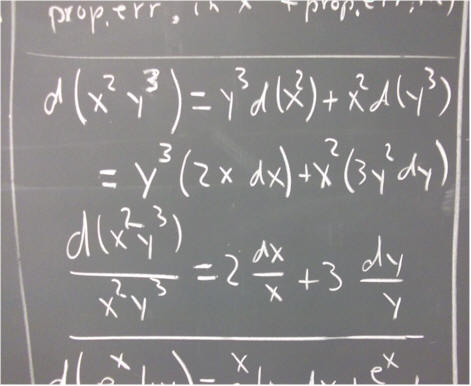 prop.err. in x + prop.err. in y)
d(x² y³) = y³ d(x²) + x² d(y³)
= y³ (2x dx) + x² (3y² dy)
d(x² y³) / x² y³ = 2 dx/x + 3 dy/y